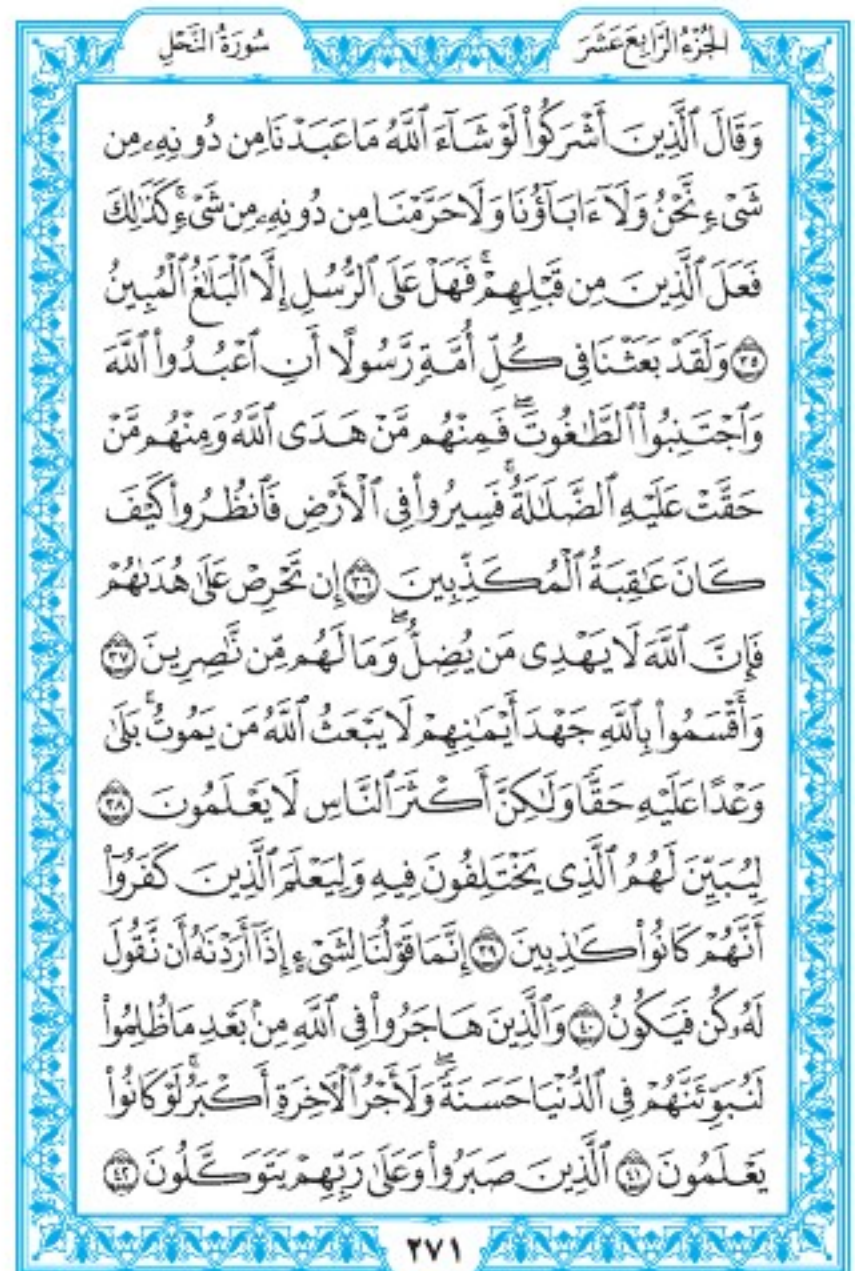 الجُزْءُ الرَّابِعَ عَشَرَ
سُورَةُ النَّحْلِ
وَقَالَ ٱلَّذِينَ أَشْرَكُوا۟ لَوْ شَآءَ ٱللَّهُ مَا عَبَدْنَا مِن دُونِهِۦ مِن
شَىْءٍ نَّحْنُ وَلَآ ءَابَآؤُنَا وَلَا حَرَّمْنَا مِن دُونِهِۦ مِن شَىْءٍ ۚ كَذَٰلِكَ
فَعَلَ ٱلَّذِينَ مِن قَبْلِهِمْ ۚ فَهَلْ عَلَى ٱلرُّسُلِ إِلَّا ٱلْبَلَٰغُ ٱلْمُبِينُ
٣٥ وَلَقَدْ بَعَثْنَا فِى كُلِّ أُمَّةٍ رَّسُولًا أَنِ ٱعْبُدُوا۟ ٱللَّهَ
وَٱجْتَنِبُوا۟ ٱلطَّٰغُوتَ ۖ فَمِنْهُم مَّنْ هَدَى ٱللَّهُ وَمِنْهُم مَّنْ
حَقَّتْ عَلَيْهِ ٱلضَّلَٰلَةُ ۚ فَسِيرُوا۟ فِى ٱلْأَرْضِ فَٱنظُرُوا۟ كَيْفَ
كَانَ عَٰقِبَةُ ٱلْمُكَذِّبِينَ ٣٦ إِن تَحْرِصْ عَلَىٰ هُدَىٰهُمْ
فَإِنَّ ٱللَّهَ لَا يَهْدِى مَن يُضِلُّ ۖ وَمَا لَهُم مِّن نَّٰصِرِينَ ٣٧
وَأَقْسَمُوا۟ بِٱللَّهِ جَهْدَ أَيْمَٰنِهِمْ لَا يَبْعَثُ ٱللَّهُ مَن يَمُوتُ ۚ بَلَىٰ
وَعْدًا عَلَيْهِ حَقًّا وَلَٰكِنَّ أَكْثَرَ ٱلنَّاسِ لَا يَعْلَمُونَ ٣٨
لِيُبَيِّنَ لَهُمُ ٱلَّذِى يَخْتَلِفُونَ فِيهِ وَلِيَعْلَمَ ٱلَّذِينَ كَفَرُوٓا۟
أَنَّهُمْ كَانُوا۟ كَٰذِبِينَ ٣٩ إِنَّمَا قَوْلُنَا لِشَىْءٍ إِذَآ أَرَدْنَٰهُ أَن نَّقُولَ
لَهُۥ كُن فَيَكُونُ ٤٠ وَٱلَّذِينَ هَاجَرُوا۟ فِى ٱللَّهِ مِنۢ بَعْدِ مَا ظُلِمُوا۟
لَنُبَوِّئَنَّهُمْ فِى ٱلدُّنْيَا حَسَنَةً ۖ وَلَأَجْرُ ٱلْءَاخِرَةِ أَكْبَرُ ۚ لَوْ كَانُوا۟
يَعْلَمُونَ ٤١ ٱلَّذِينَ صَبَرُوا۟ وَعَلَىٰ رَبِّهِمْ يَتَوَكَّلُونَ ٤٢
٢٧١